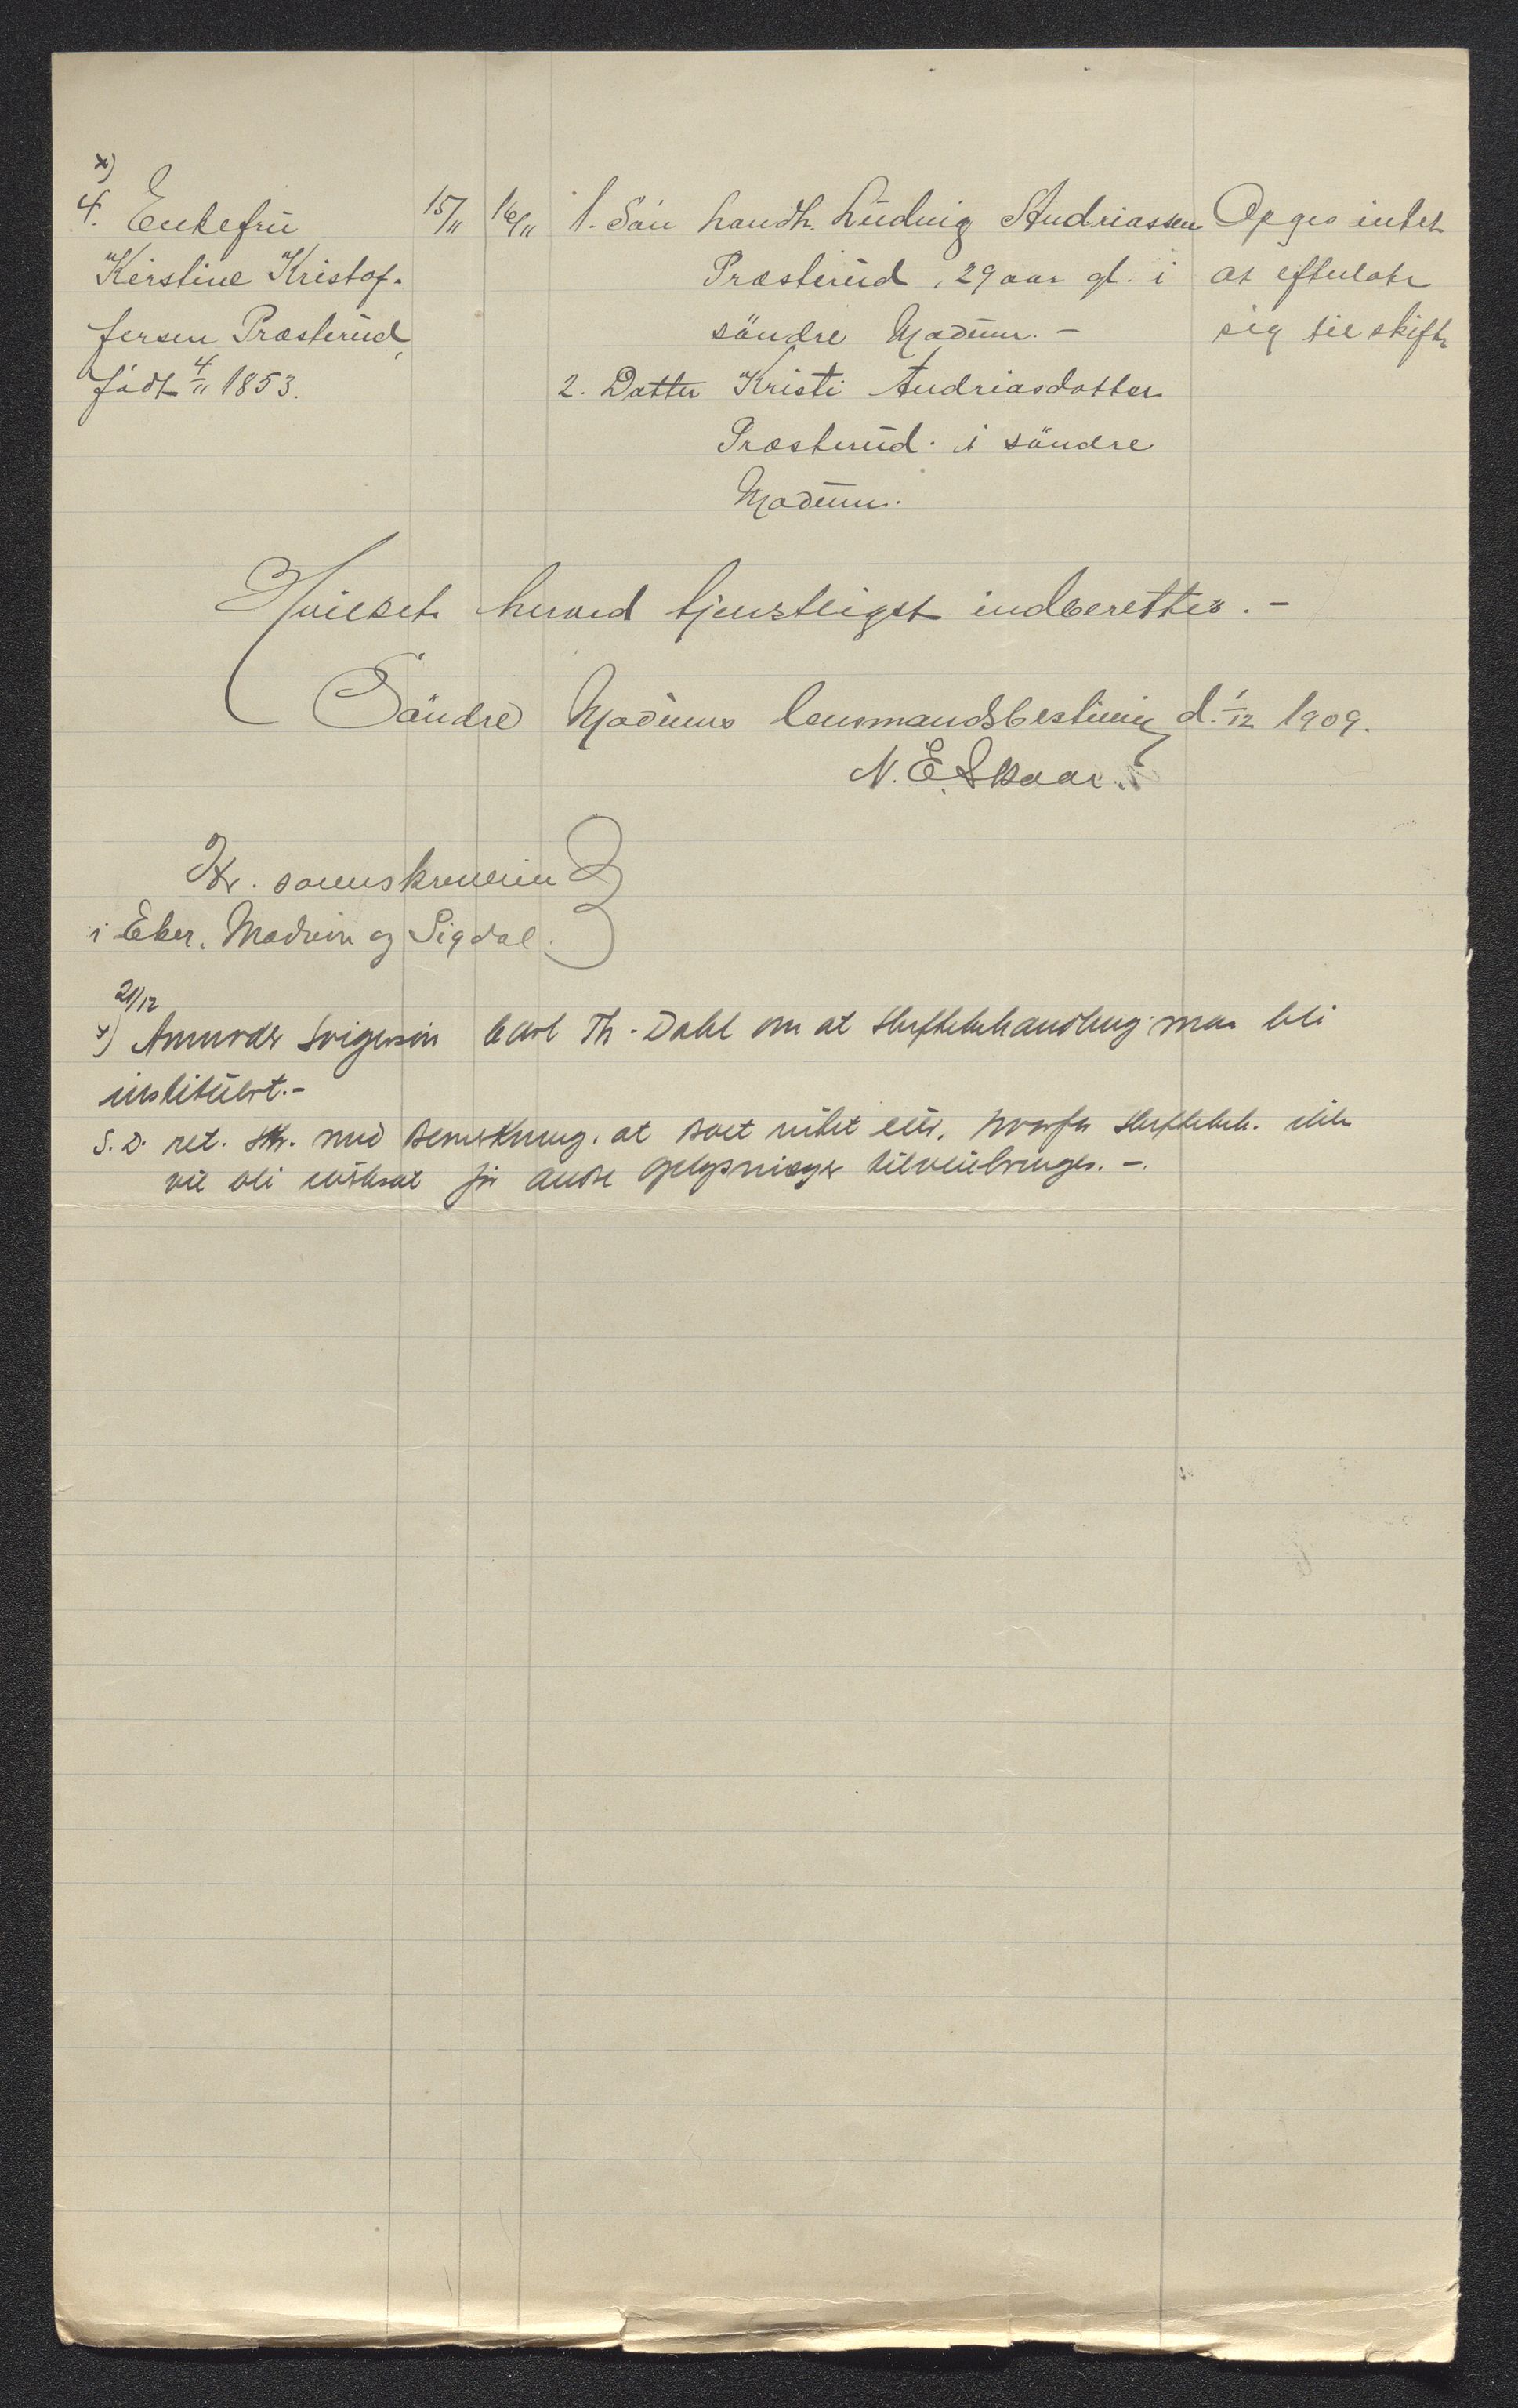 x)
4. Enkefru
Kirstine Kristof-
fersen Præsterud,
född 4/11 1853.
15/11 16/11
1. Sön handh. Ludvig Andriassen
Præsterud, 29 aar gl. i
söndre Modum. -
2. Datter Kristi Andriasdatter
Præsterud i söndre
Modum.
Opgis intet
at efterlate
sig til skifte
Hvilket herved tjenstligst indberettes. -
Söndre Modums lensmandsbestilling d. 1/12 1909.
N. E. Skaar.
Hr. sorenskriveren
i Eker, Modum og Sigdal.
21/12
x) Anmoder Svigersön Carl Th. Dahl om at skiftebehandling maa bli
institueret. -
S. D. ret. Skr. med Bemerkning. at Boet intet eier, hvorfor skiftebeh. ikke
vil bli iverksat för andre Oplysninger tilveiebringes. -.